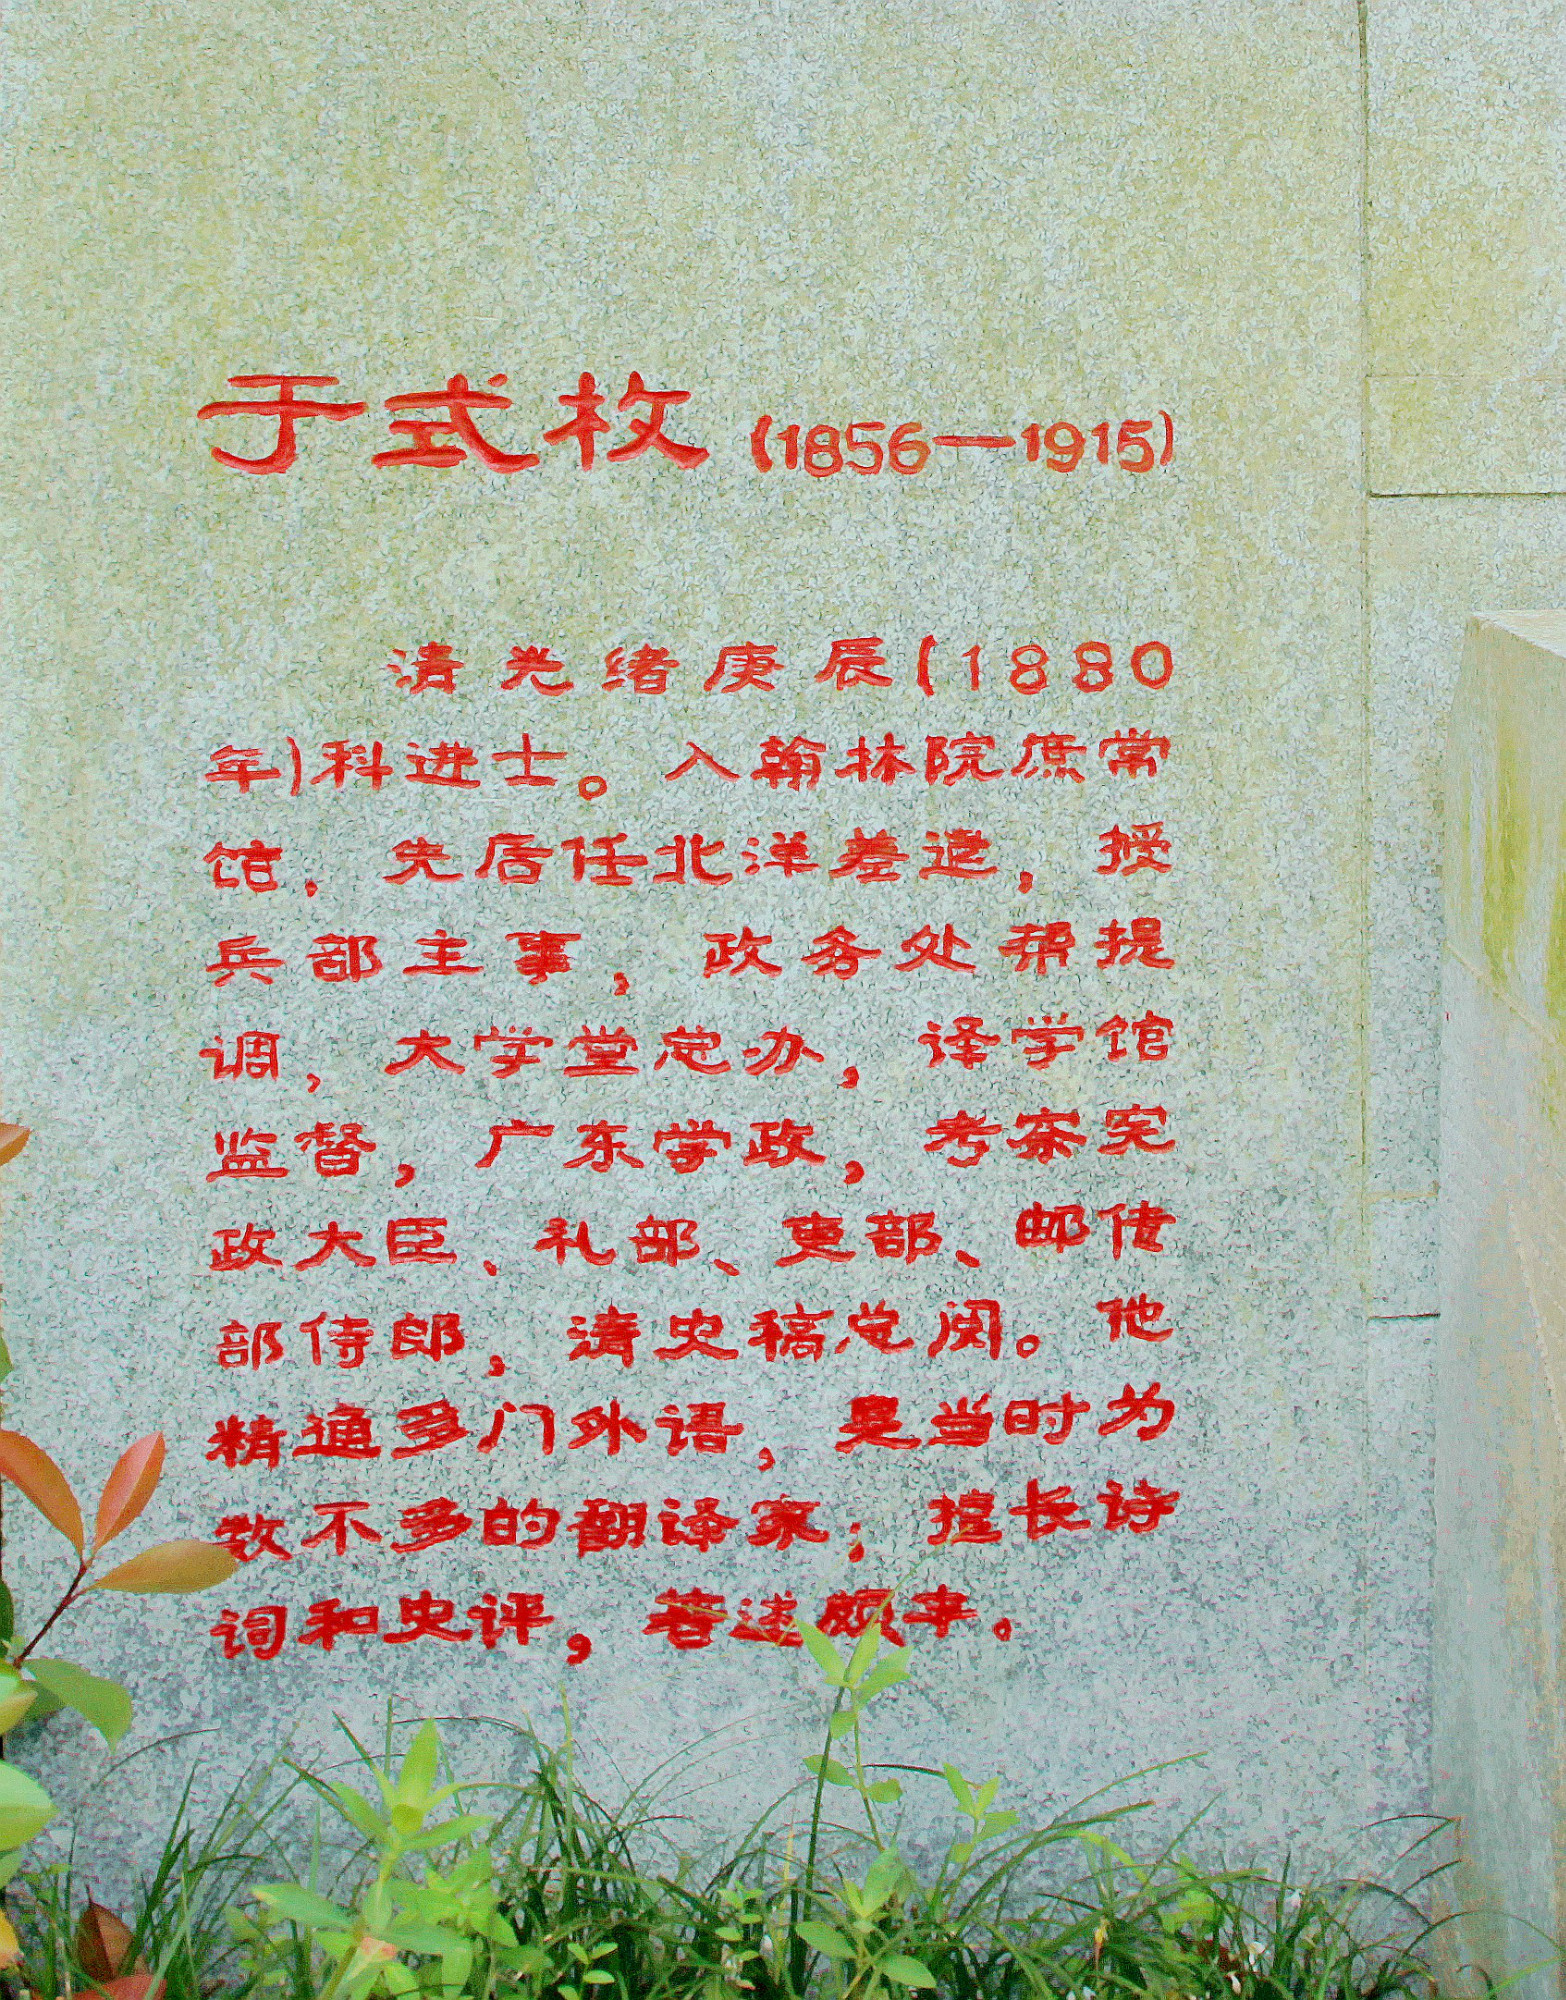 于式枚 (1856—1915)
清光绪庚辰(1880
年)科进士。入翰林院庶常
馆，先后任北洋差遣，授
兵部主事，政务处帮提
调，大学堂总办，译学馆
监督，广东学政，考察宪
政大臣、礼部、吏部、邮传
部侍郎，清史稿总阅。他
精通多门外语，是当时为
数不多的翻译家；擅长诗
词和史评，著述颇丰。